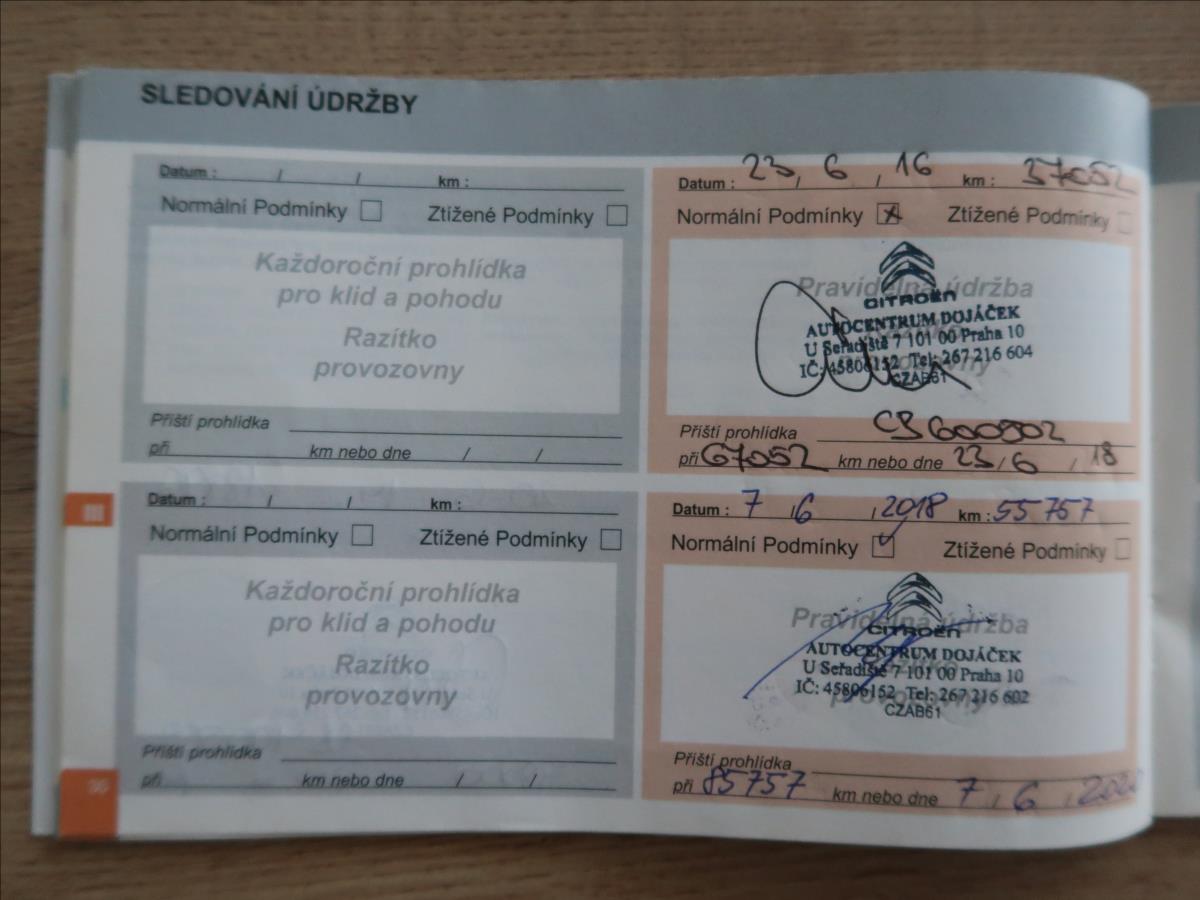 SLEDOVÁNÍ ÚDRŽBY
Datum : / / km :
Normální Podmínky Ztížené Podmínky
Každoroční prohlídka
pro klid a pohodu
Razítko
provozovny
Příští prohlídka
při km nebo dne / /
Datum : 23 / 6 / 16 km : 37052
Normální Podmínky Ztížené Podmínky
Pravidelná údržba
Razítko
provozovny
CITROËN
AUTOCENTRUM DOJÁČEK
U Seřadiště 7 101 00 Praha 10
IČ: 45806152 Tel: 267 216 604
CZAB61
Příští prohlídka
při 67052 km nebo dne 23 / 6 / 18
III
Datum : / / km :
Normální Podmínky Ztížené Podmínky
Každoroční prohlídka
pro klid a pohodu
Razítko
provozovny
Příští prohlídka
při km nebo dne / /
Datum : 7 / 6 / 2018 km : 55757
Normální Podmínky Ztížené Podmínky
Pravidelná údržba
Razítko
provozovny
CITROËN
AUTOCENTRUM DOJÁČEK
U Seřadiště 7 101 00 Praha 10
IČ: 45806152 Tel: 267 216 602
CZAB61
Příští prohlídka
při 85757 km nebo dne 7 / 6 / 2020